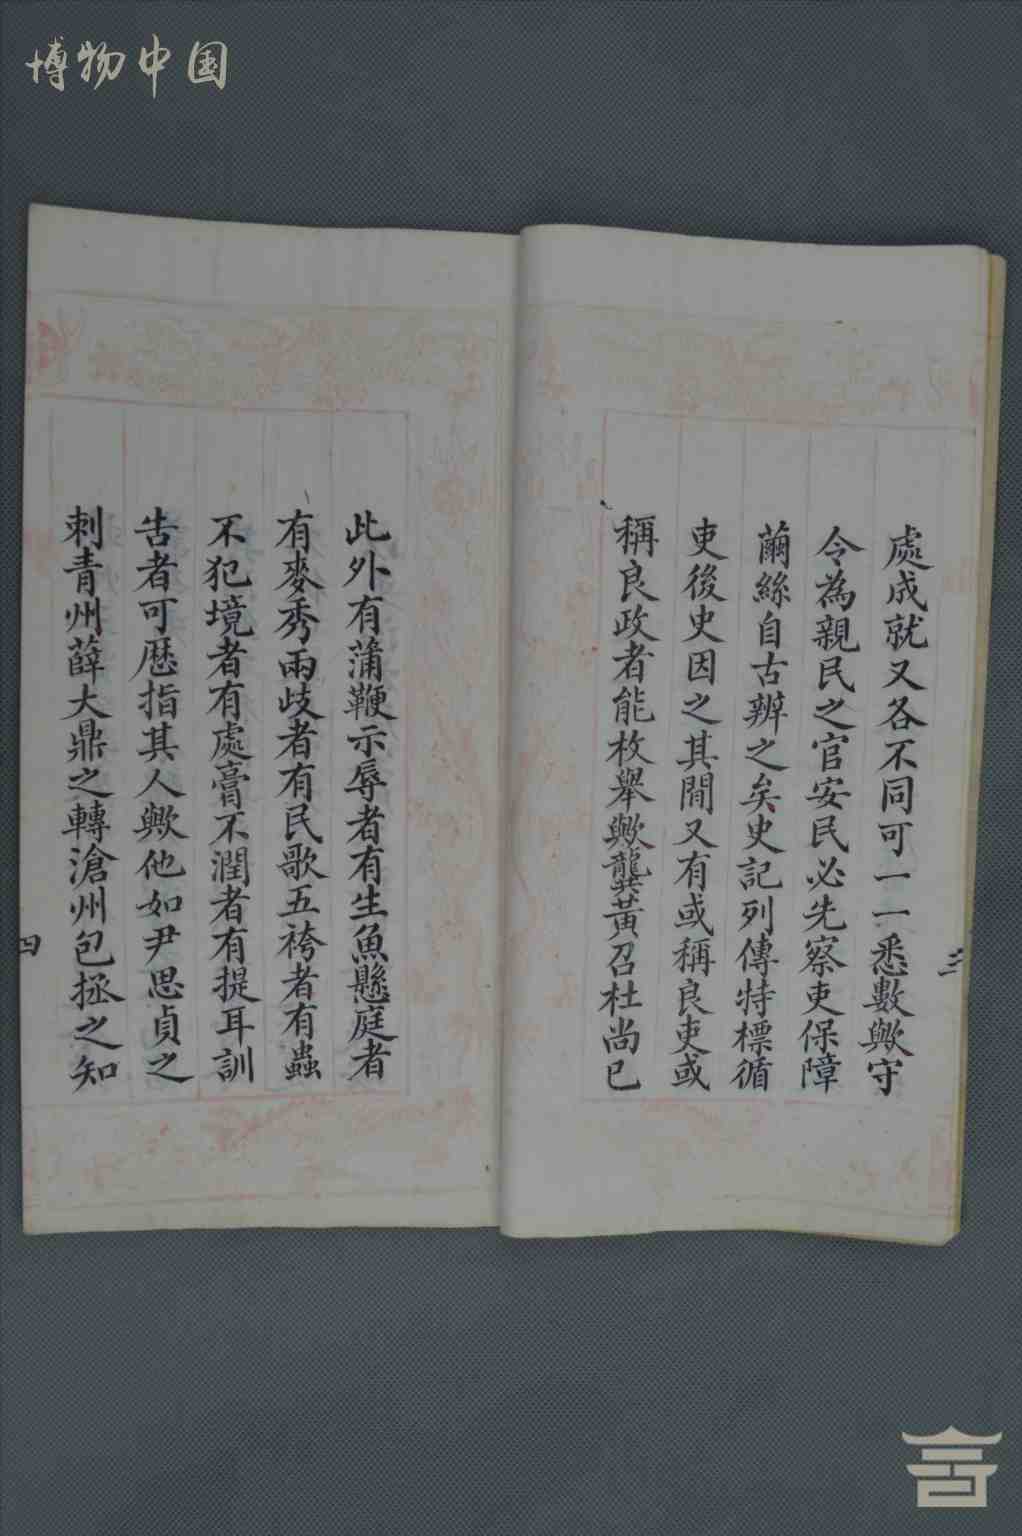 博物中国
處成就又各不同可一一悉數歟守
令為親民之官安民必先察吏保障
繭絲自古辨之矣史記列傳特標循
吏後史因之其間又有或稱良吏或
稱良政者能枚舉歟龔黃召杜尚已
三
此外有蒲鞭示辱者有生魚懸庭者
有麥秀兩歧者有民歌五袴者有蟲
不犯境者有處膏不潤者有提耳訓
告者可歷指其人歟他如尹思貞之
刺青州薛大鼎之轉滄州包拯之知
四